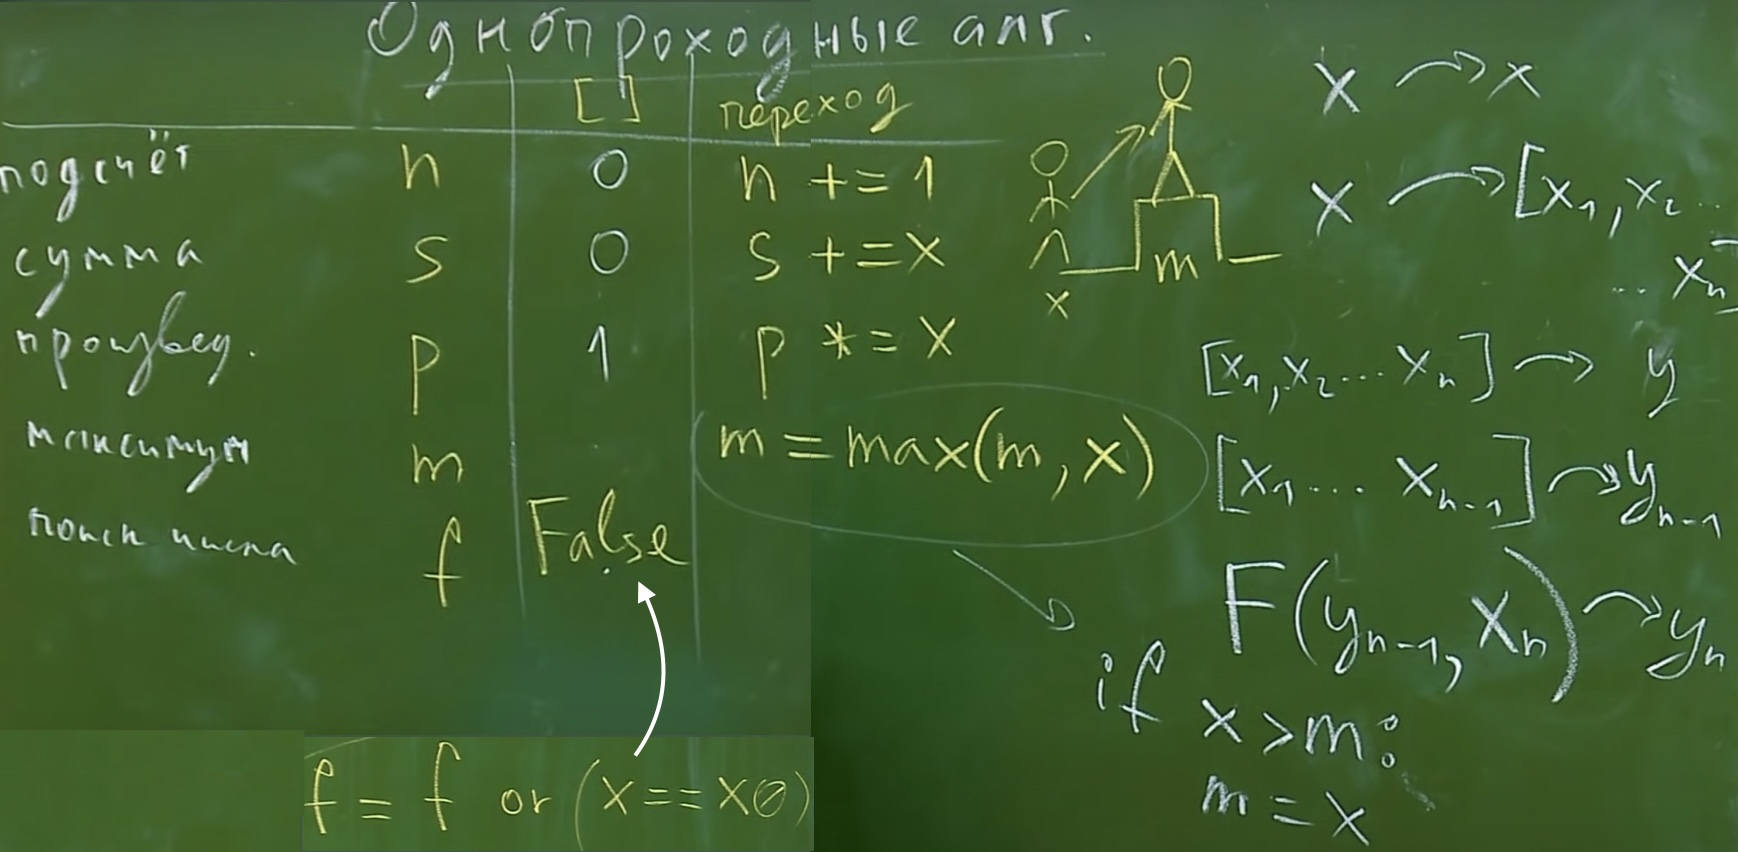 Однопроходные алг.
[] переход
подсчёт n 0 n += 1
сумма s 0 s += x
произвед. p 1 p *= x
максимум m m = max(m, x)
поиск числа f False
f = f or (x == x0)
x m
x → x
x → [x₁, x₂ ..
.. xₙ]
[x₁, x₂ ... xₙ] → y
[x₁ ... xₙ₋₁] → yₙ₋₁
F(yₙ₋₁, xₙ) → yₙ
if x > m:
m = x